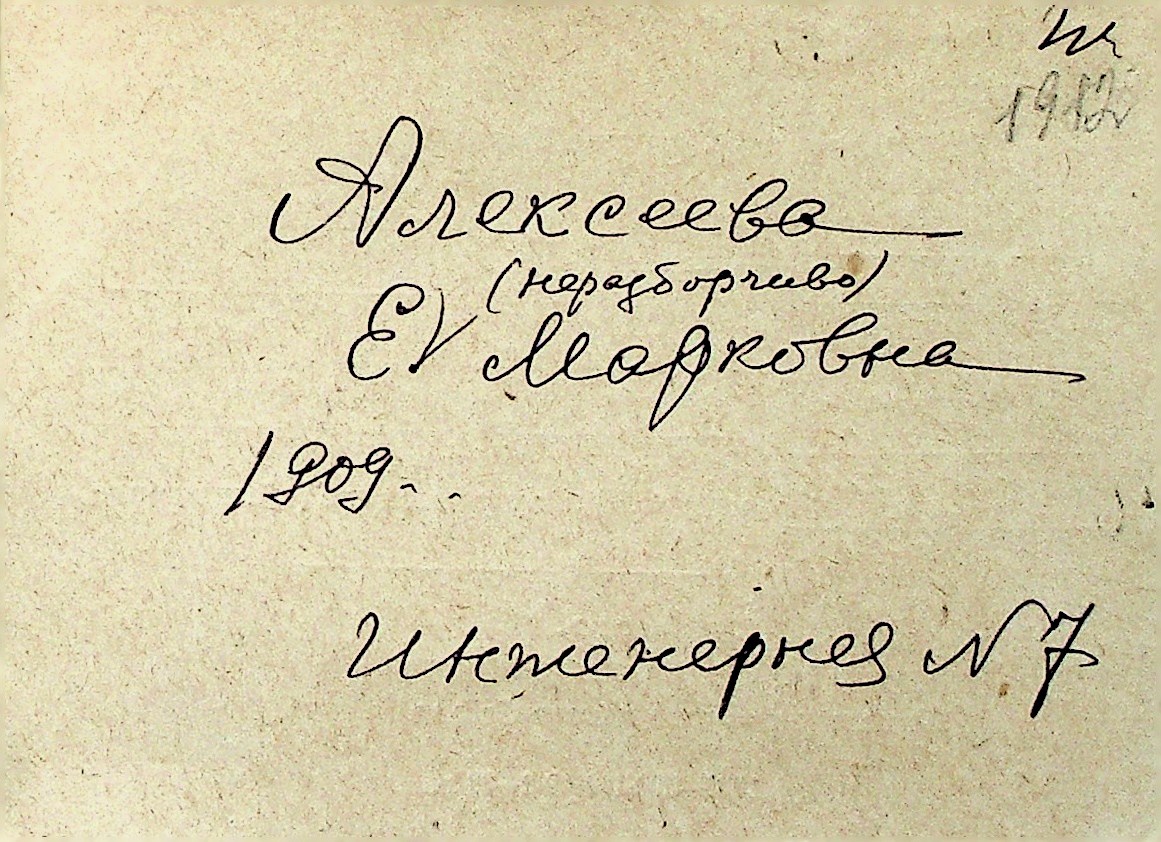 1912
Алексеева
(неразборчиво)
Е Марковна
1909..
Инженерная N 7